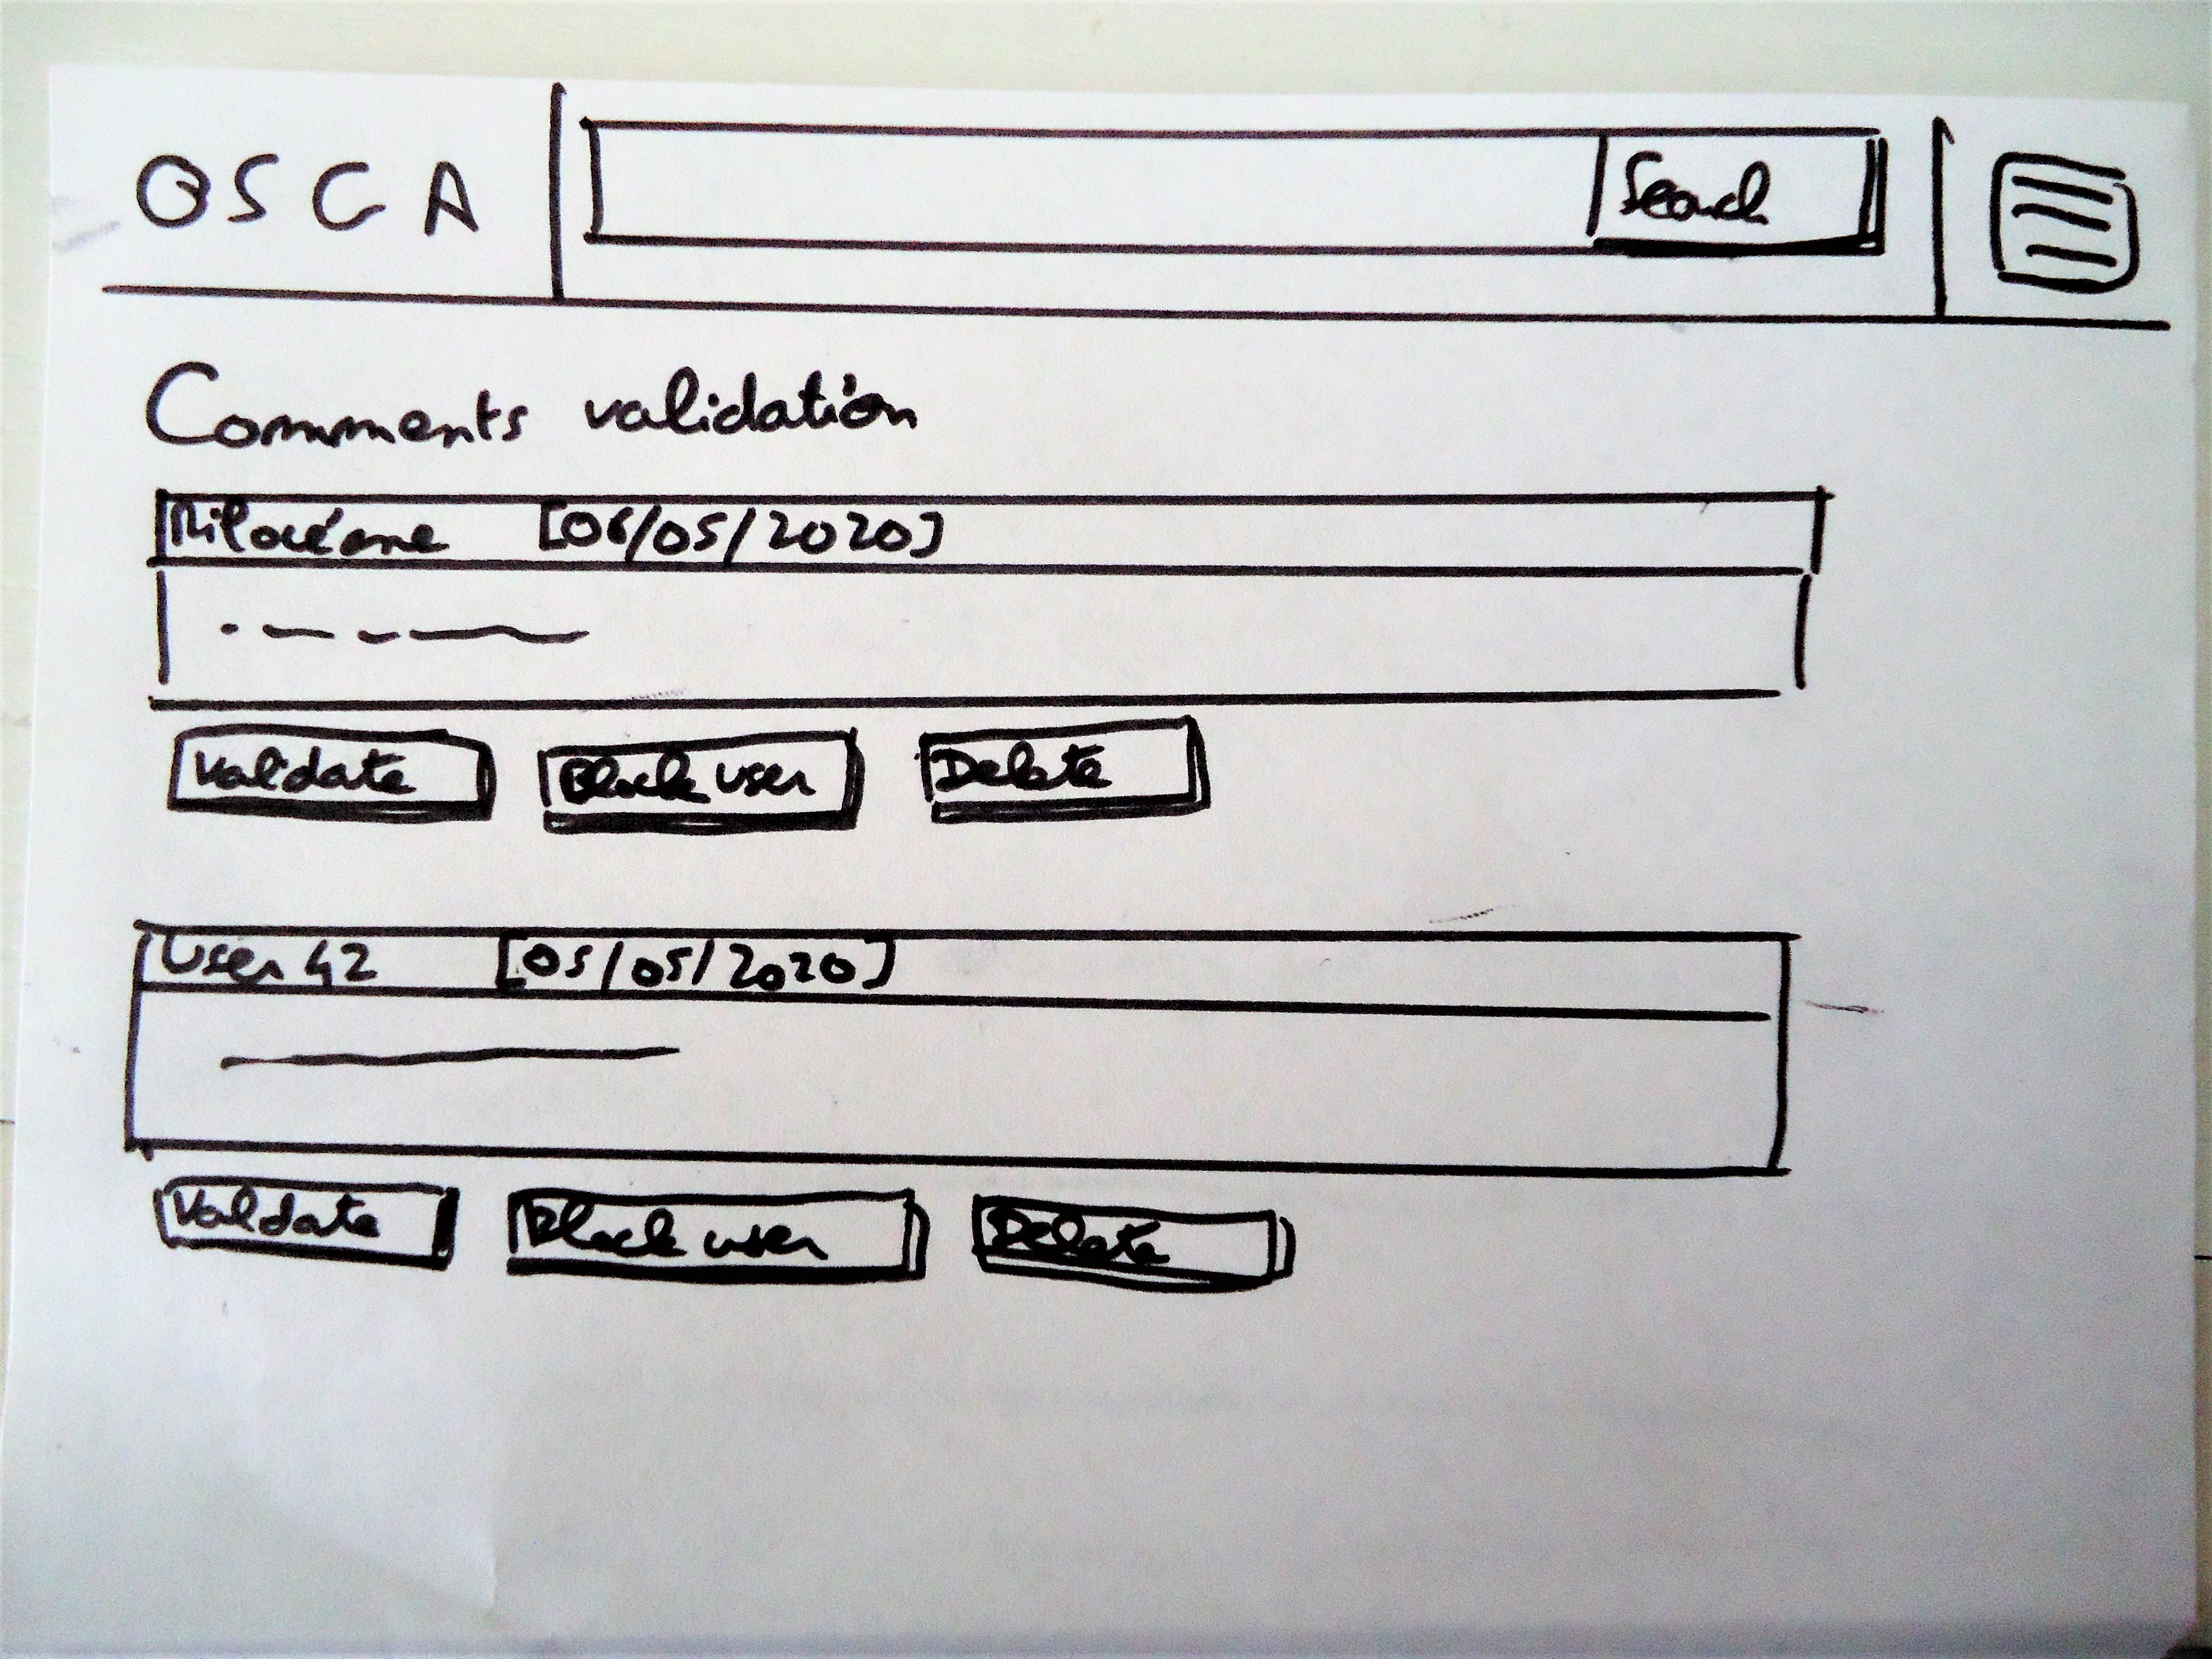 OSCA
Search
Comments validation
[06/05/2020]
Validate Block user Delete
User 42 [05/05/2020]
Validate Block user Delete